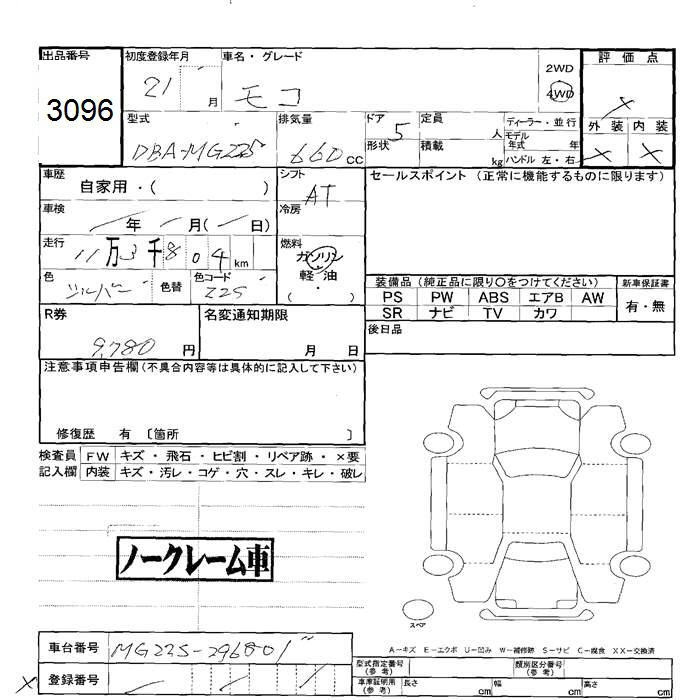 出品番号 初度登録年月 車名・グレード 評価点
3096 21 月 モコ 2WD 4WD ×
型式 排気量 ドア 定員 ディーラー・並行 外装 内装
DBA-MG22S 660 CC 形状 5 人 積載 kg モデル年式 年 ハンドル 左・右 × ×
車歴 シフト セールスポイント (正常に機能するものに限ります)
自家用・( ) AT
車検 年 月( 日) 冷房
走行 11万3千804km 燃料 ガソリン
軽・油
・
( )
色 シルバー 色替 色コード Z2S
装備品 (純正品に限り〇をつけてください) 新車保証書
PS PW ABS エアB AW 有・無
SR ナビ TV カワ
R券 名変通知期限 後日品
9,780 円 月 日
注意事項申告欄 (不具合内容等は具体的に記入して下さい)
修復歴 有 〔箇所 〕
検査員 FW キズ・飛石・ヒビ割・リペア跡・×要
記入欄 内装 キズ・汚レ・コゲ・穴・スレ・キレ・破レ
ノークレーム車
スペア
A－キズ E－エクボ U－凹み W－補修跡 S－サビ C－腐食 XX－交換済
車台番号 MG22S-296801
型式指定番号 (参考) 類別区分番号 (参考)
× 登録番号
車庫証明用 (参考) 長さ cm 幅 cm 高さ cm